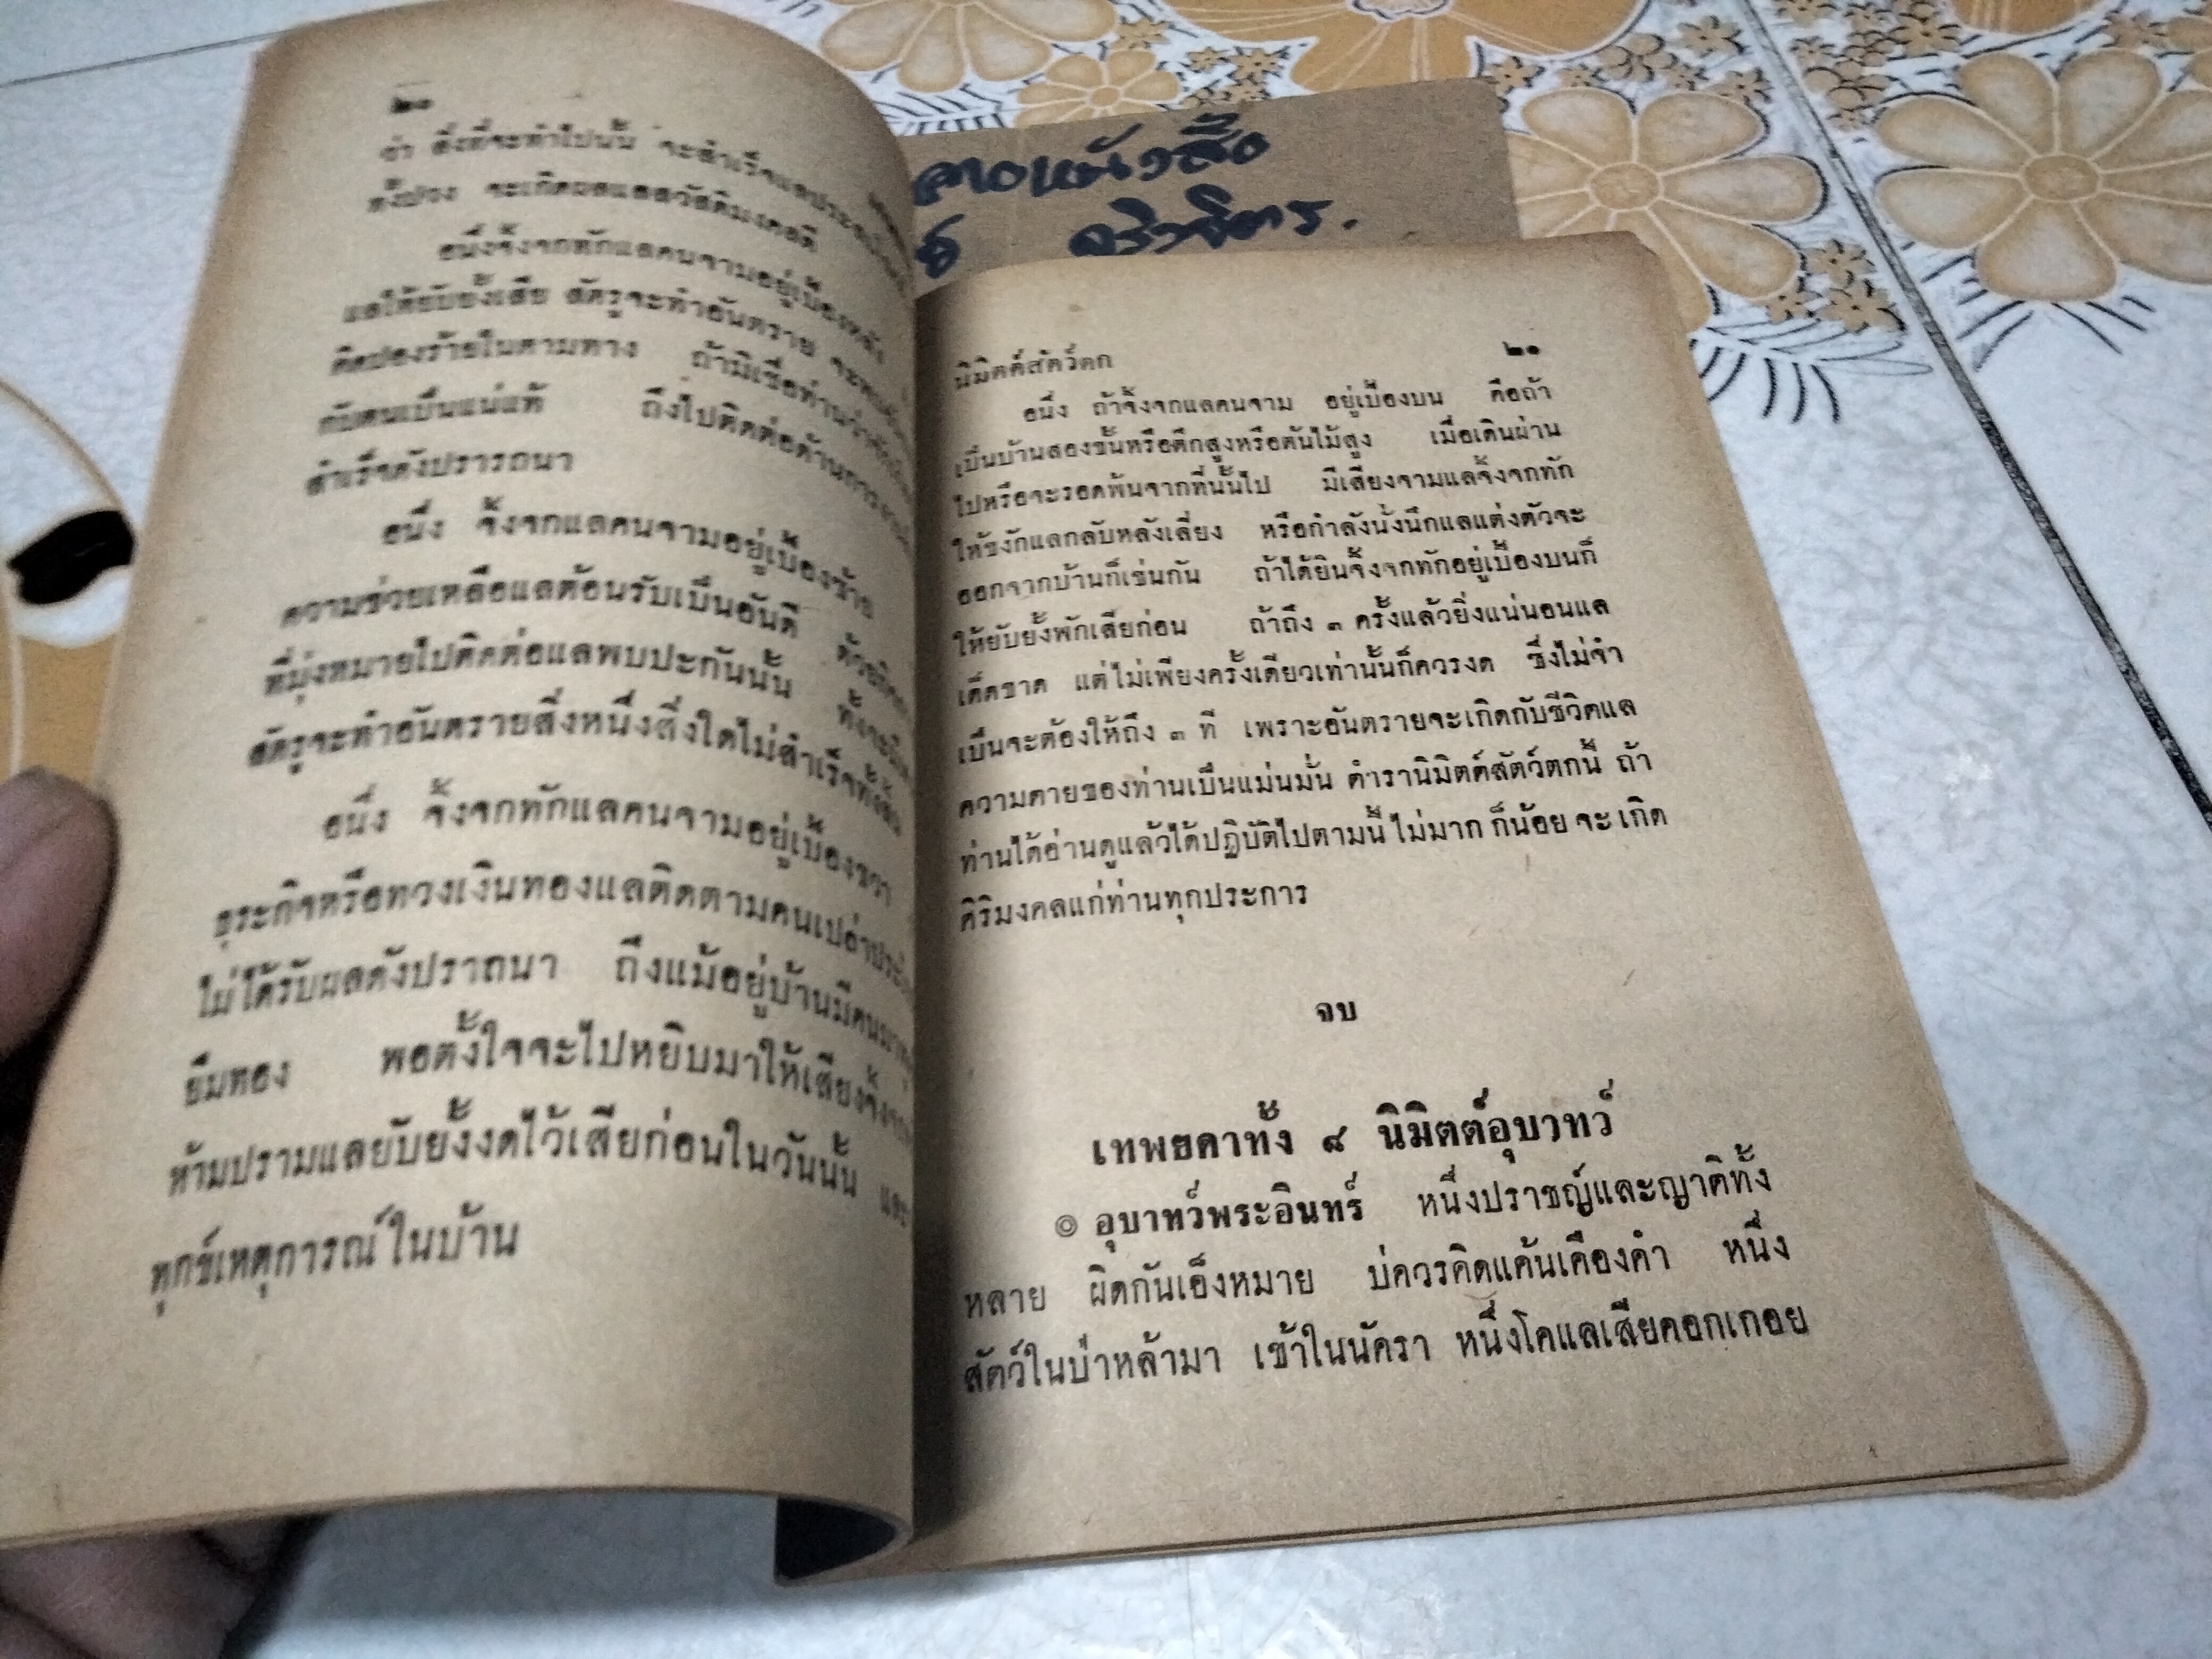 ๒๐
ว่า สิ่งที่จะทำไปนั้น จะสำเร็จแลประ
ทั้งปวง จะเกิดผลแลสวัสดิมงคลดี
อนึ่งจิ้งจกทักแลคนจามอยู่เบื้องหลัง
แลให้ยับยั้งเสีย ศัตรูจะทำอันตราย จะพบ
คิดปองร้ายในตามทาง ถ้ามิเชื่อท่านว่า
กับตนเป็นแน่แท้ ถึงไปติดต่อด้านการงาน
สำเร็จดังปรารถนา
อนึ่ง จิ้งจกแลคนจามอยู่เบื้องซ้าย
ความช่วยเหลือแลต้อนรับเป็นอันดี ด้วย
ที่มุ่งหมายไปติดต่อแลพบปะกันนั้น ทั้งจะมี
ศัตรูจะทำอันตรายสิ่งหนึ่งสิ่งใดไม่สำเร็จทั้งสิ้น
อนึ่ง จิ้งจกทักแลคนจามอยู่เบื้องขวา
ธุระกิจหรือทวงเงินทองแลติดตามคนเปล่าประ
ไม่ได้รับผลดังปราถนา ถึงแม้อยู่บ้านมีคนมา
ยืมทอง พอตั้งใจจะไปหยิบมาให้เสียงจิ้งจก
ห้ามปรามแลยับยั้งงดไว้เสียก่อนในวันนั้น และ
ทุกข์เหตุการณ์ในบ้าน
นิมิตต์สัตว์ตก ๒๑
อนึ่ง ถ้าจิ้งจกแลคนจาม อยู่เบื้องบน คือถ้า
เป็นบ้านสองชั้นหรือตึกสูงหรือต้นไม้สูง เมื่อเดินผ่าน
ไปหรือจะรอดพ้นจากที่นั้นไป มีเสียงจามแลจิ้งจกทัก
ให้ชงักแลกลับหลังเลี่ยง หรือกำลังนั่งนึกแลแต่งตัวจะ
ออกจากบ้านก็เช่นกัน ถ้าได้ยินจิ้งจกทักอยู่เบื้องบนก็
ให้ยับยั้งพักเสียก่อน ถ้าถึง ๓ ครั้งแล้วยิ่งแน่นอนแล
เด็ดขาด แต่ไม่เพียงครั้งเดียวเท่านั้นก็ควรงด ซึ่งไม่จำ
เป็นจะต้องให้ถึง ๓ ที เพราะอันตรายจะเกิดกับชีวิตแล
ความตายของท่านเป็นแม่นมั่น ตำรานิมิตต์สัตว์ตกนี้ ถ้า
ท่านได้อ่านดูแล้วได้ปฏิบัติไปตามนี้ ไม่มาก ก็น้อย จะ เกิด
ศิริมงคลแก่ท่านทุกประการ
จบ
เทพยดาทั้ง ๘ นิมิตต์อุบาทว์
◎ อุบาทว์พระอินทร์ หนึ่งปราชญ์และญาติทั้ง
หลาย ผิดกันเอ็งหมาย บ่ควรคิดแค้นเคืองคำ หนึ่ง
สัตว์ในป่าหล้ามา เข้าในนัครา หนึ่งโคแลเสียดอกเกอย